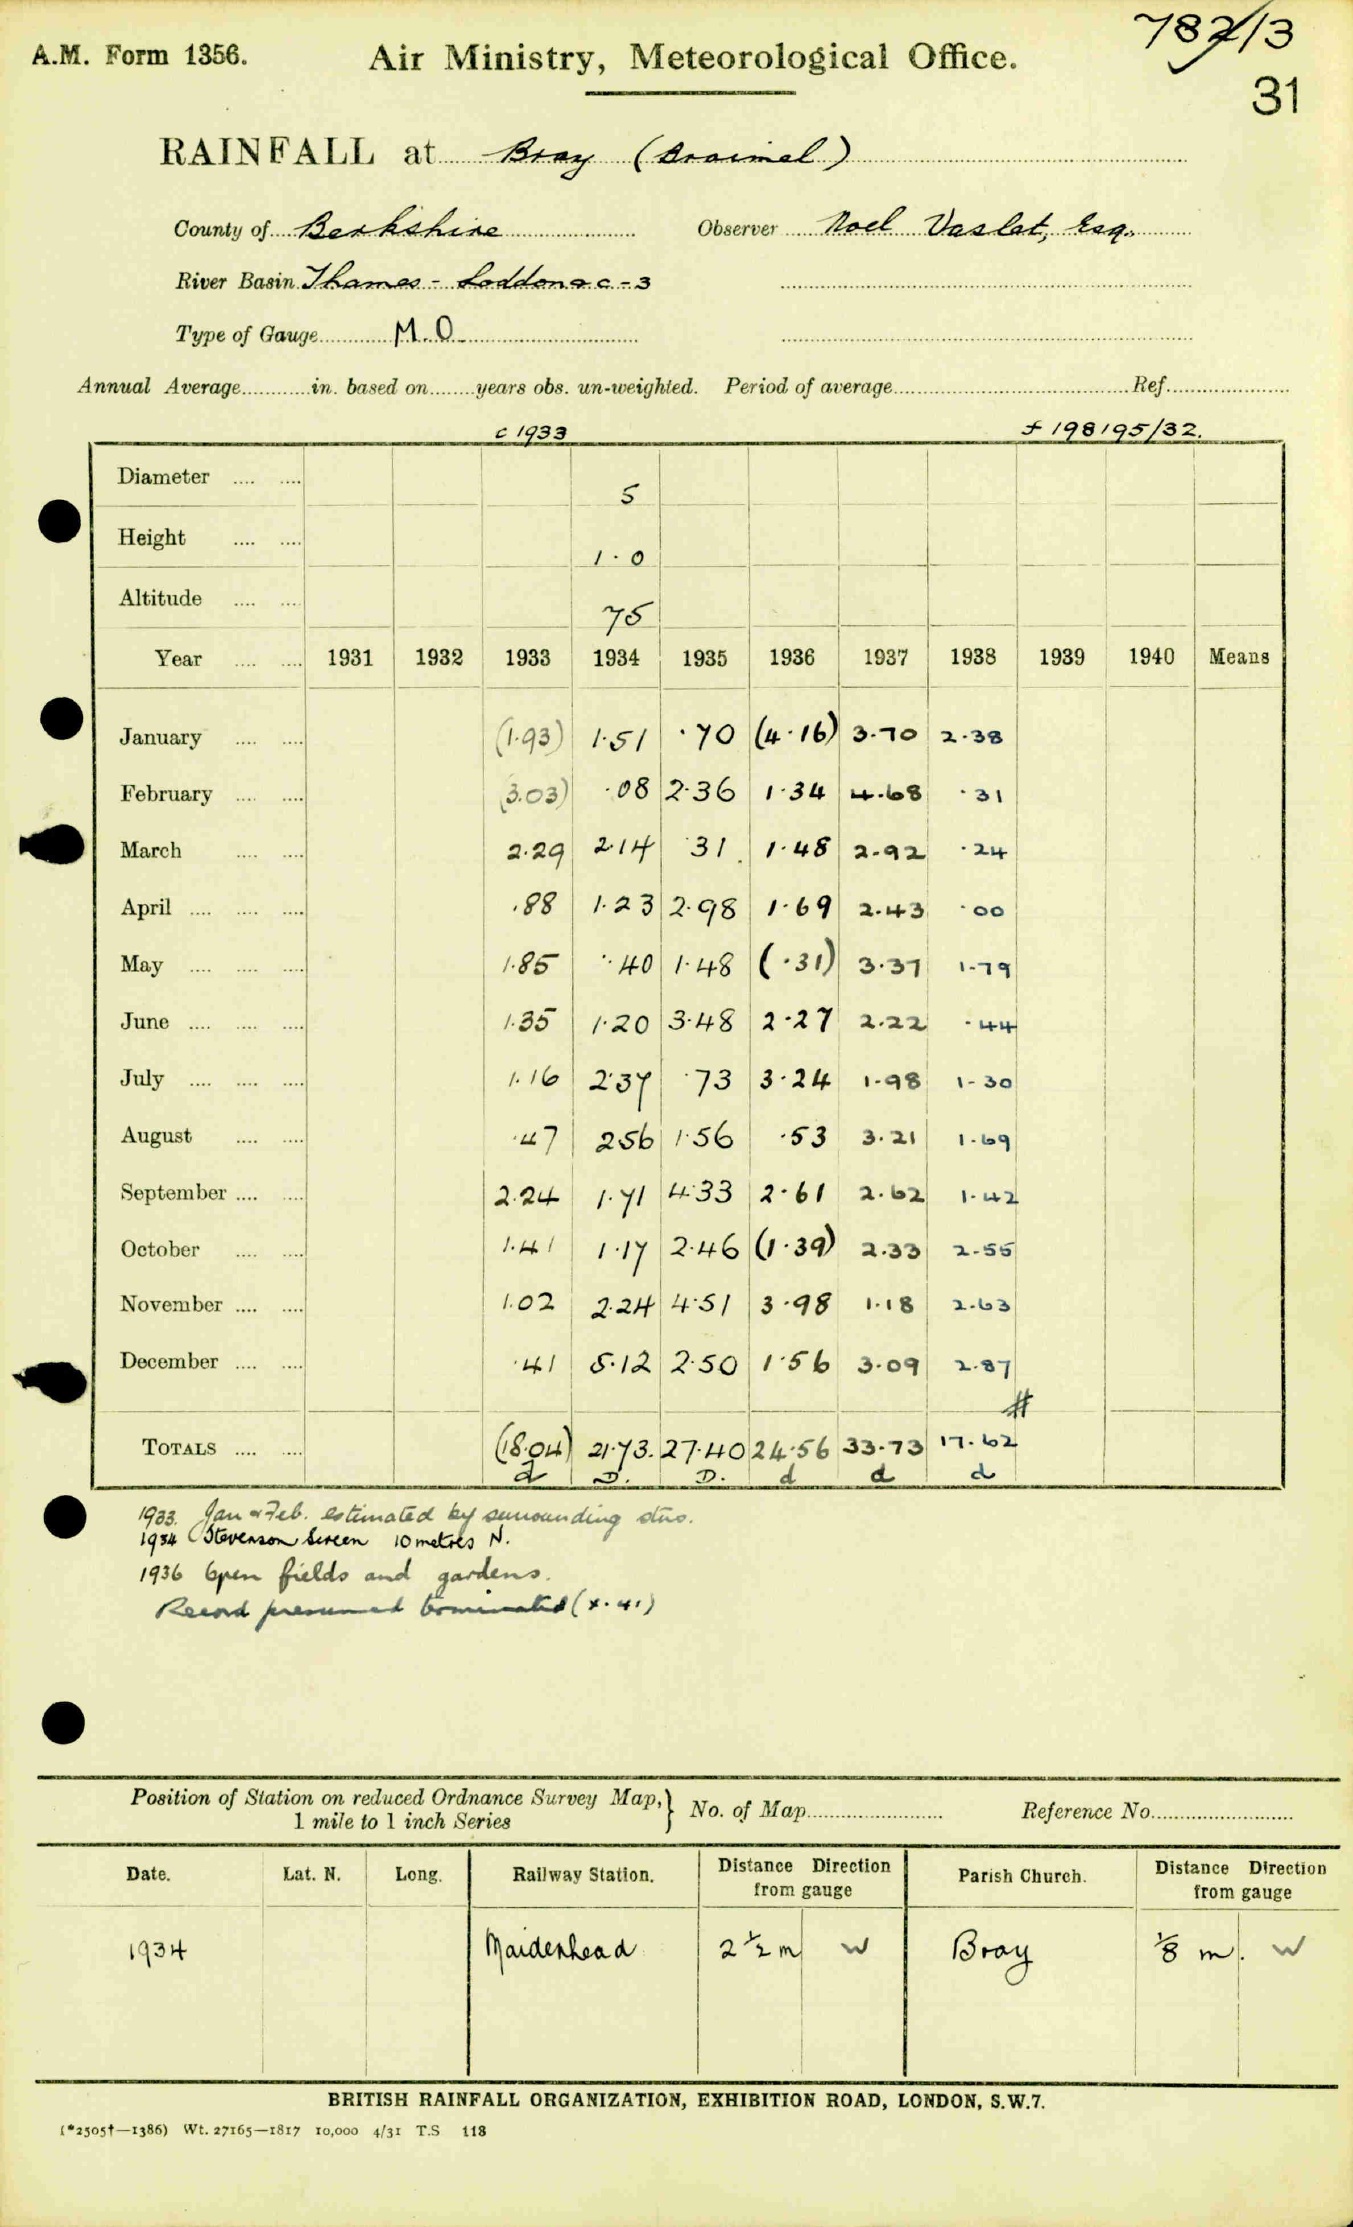 A.M. Form 1356. Air Ministry, Meteorological Office. 787/13
31
RAINFALL at Bray (Braimel)
County of Berkshire Observer Noel Vaslet, Esq.
River Basin Thames - Loddon &c - 3
Type of Gauge M.O
Annual Average in. based on years obs. un-weighted. Period of average Ref.
c 1933 f 198195/32.
Diameter 5
Height 1.0
Altitude 75
Year 1931 1932 1933 1934 1935 1936 1937 1938 1939 1940 Means
January (1.93) 1.51 .70 (4.16) 3.70 2.38
February (3.03) .08 2.36 1.34 4.68 .31
March 2.29 2.14 .31 1.48 2.92 .24
April .88 1.23 2.98 1.69 2.43 .00
May 1.85 .40 1.48 (.31) 3.37 1.79
June 1.35 1.20 3.48 2.27 2.22 .44
July 1.16 2.37 .73 3.24 1.98 1.30
August .47 2.56 1.56 .53 3.21 1.69
September 2.24 1.71 4.33 2.61 2.62 1.42
October 1.41 1.17 2.46 (1.39) 2.33 2.55
November 1.02 2.24 4.51 3.98 1.18 2.63
December .41 5.12 2.50 1.56 3.09 2.87
#
TOTALS (18.04) 21.73. 27.40 24.56 33.73 17.62
d D. D. d d d
1933. Jan & Feb. estimated by surrounding stns.
1934 Stevenson Screen 10 metres N.
1936 Open fields and gardens.
Record presumed terminated (x.41)
Position of Station on reduced Ordnance Survey Map, } No. of Map Reference No.
1 mile to 1 inch Series
Date. Lat. N. Long. Railway Station. Distance Direction from gauge Parish Church. Distance Direction from gauge
1934 Maidenhead 2 ½ m W Bray ⅛ m. W
BRITISH RAINFALL ORGANIZATION, EXHIBITION ROAD, LONDON, S.W.7.
(*2505†—1386) Wt. 27165—1817 10,000 4/31 T.S 118